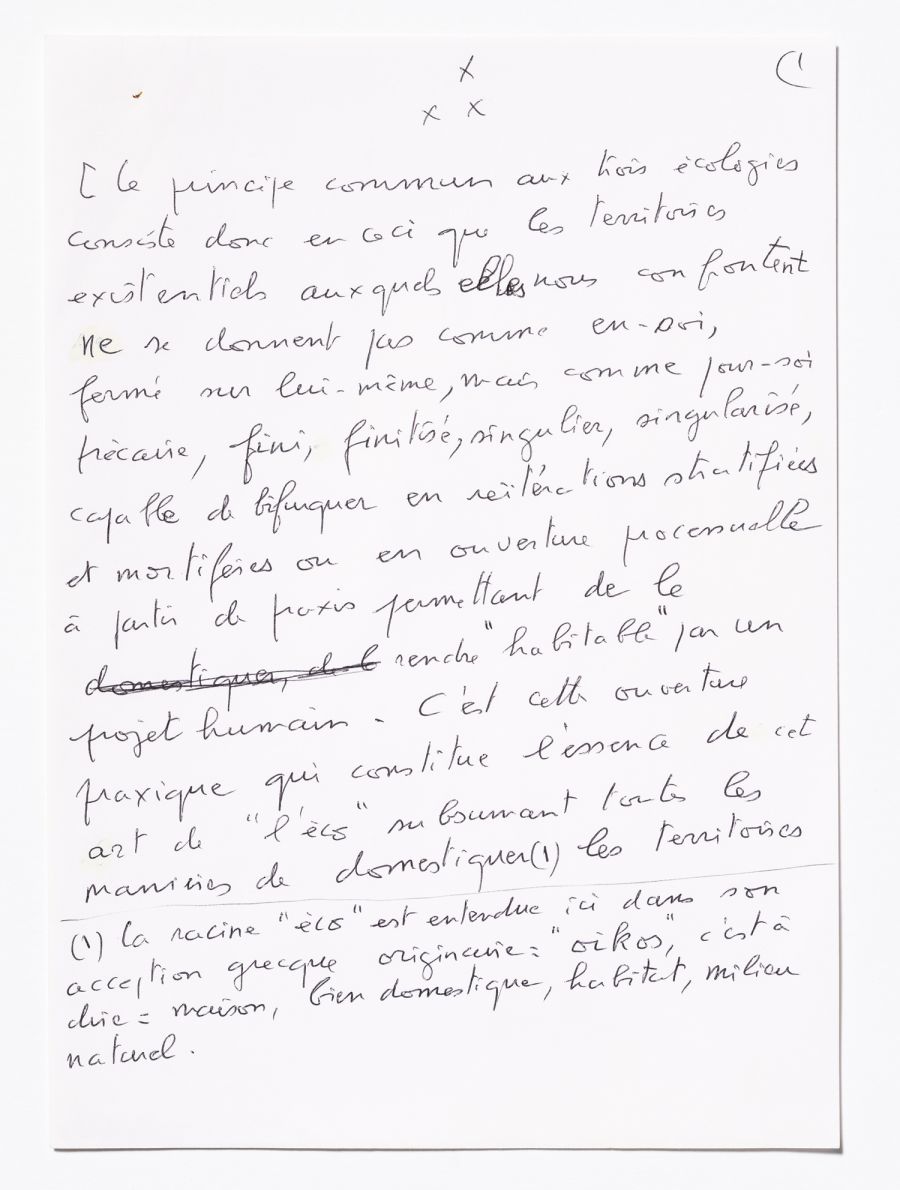 x
x x
[ Le principe commun aux trois écologies
consiste donc en ceci que les territoires
existentiels auxquels elles nous confrontent
ne se donnent pas comme en-soi,
fermé sur lui-même, mais comme pour-soi
précaire, fini, finitisé, singulier, singularisé,
capable de bifurquer en réitérations stratifiées
et mortifères ou en ouverture processuelle
à partir de praxis permettant de le
domestiquer, de l rendre "habitable" par un
projet humain. C'est cette ouverture
praxique qui constitue l'essence de cet
art de "l'éco" subsumant toutes les
manières de domestiquer(1) les territoires
(1) La racine "éco" est entendue ici dans son
acception grecque originaire : "oïkos", c'est à
dire : maison, bien domestique, habitat, milieu
naturel.